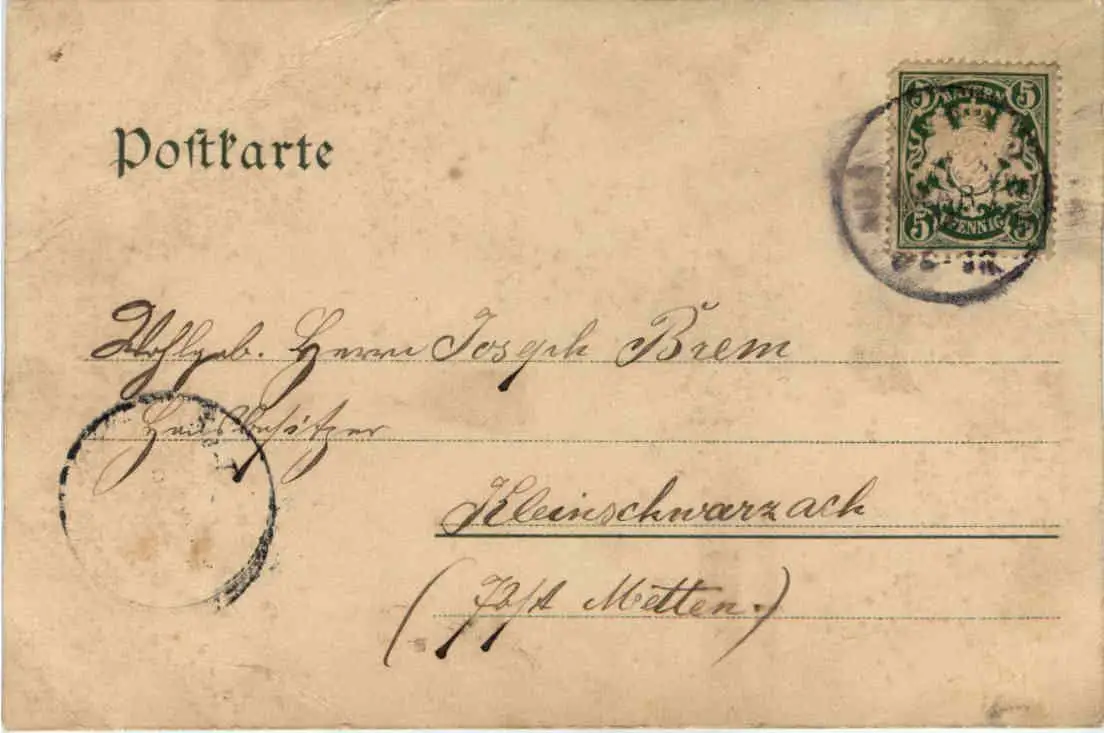 Postkarte
5 BAYERN 5
5 PFENNIG 5
Wohlgeb. Herrn Joseph Brem
Hausbesitzer
Kleinschwarzach
(Post Metten.)